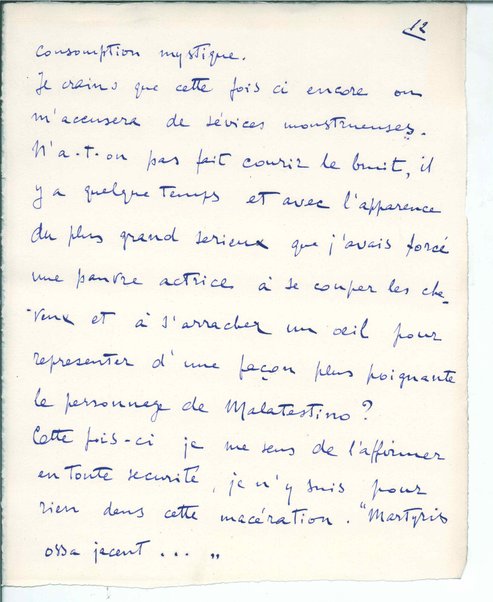 12
consomption mystique.
Je crains que cette fois ci encore on
m'accusera de sévices monstrueuses.
N'a-t-on pas fait courir le bruit, il
y a quelque temps et avec l'apparence
du plus grand serieux que j'avais forcé
une pauvre actrice à se couper les che-
veux et à s'arracher un œil pour
representer d'une façon plus poignante
le personnage de Malatestino?
Cette fois-ci je me sens de l'affirmer
en toute securité, je n'y suis pour
rien dans cette macération. "Martyris
ossa jacent... „